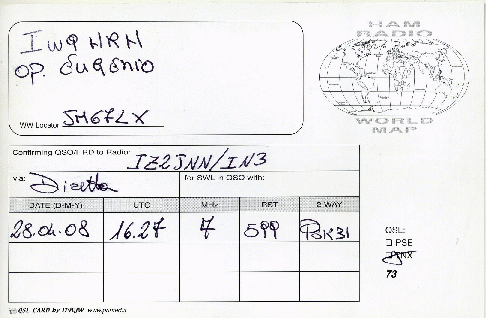 HAM
RADIO
WORLD
MAP
OP. EUGENIO
WW Locator JM67LX
Confirming QSO/HRD to Radio: IZ2JNN/IN3
via: Diretta for SWL in QSO with:
DATE (D-M-Y) UTC MHz RST 2-WAY
28.04.08 16.27 7 599 PSK31
QSL:
PSE
TNX
73
QSL CARD by